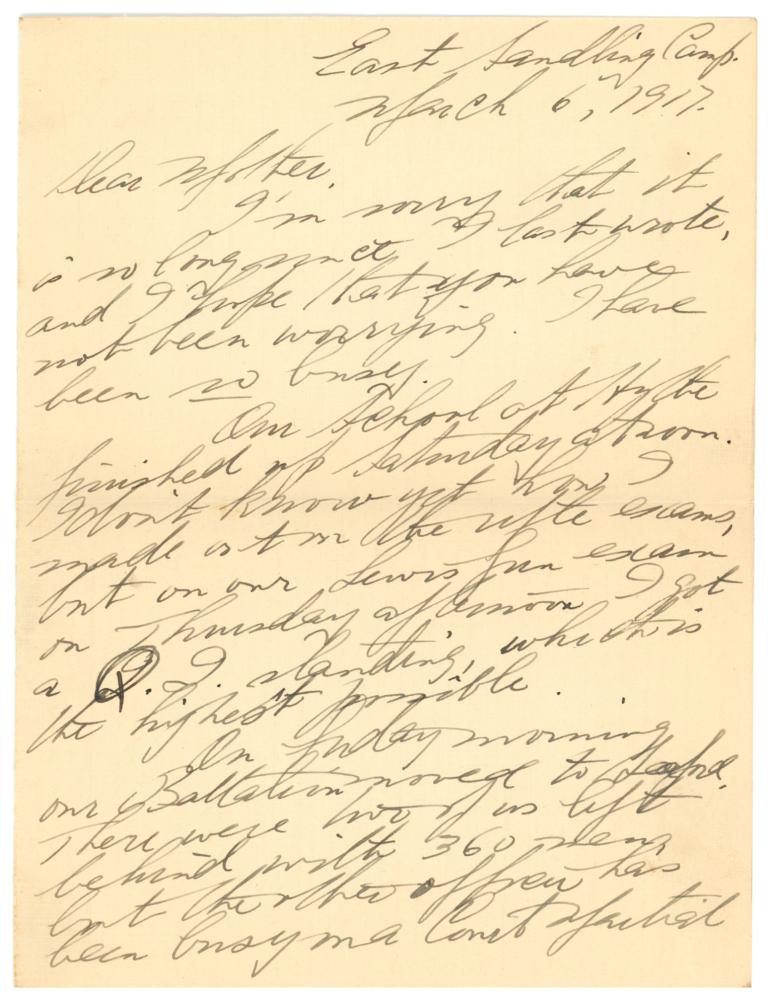 East Sandling Camp.
March 6, 1917.
Dear Mother,
I'm sorry that it
is so long since I last wrote,
and I hope that you have
not been worrying. I have
been so busy.
Our School at Hythe
finished up Saturday at noon.
I don't know yet how I
made out on the rifle exams,
but on our Lewis Gun exam
on Thursday afternoon I got
a Q. I. standing, which is
the highest possible.
On Friday morning
our Battalion moved to Seaford.
There were two of us left
behind with 360 men,
but the other officer has
been busy on a Court Martial